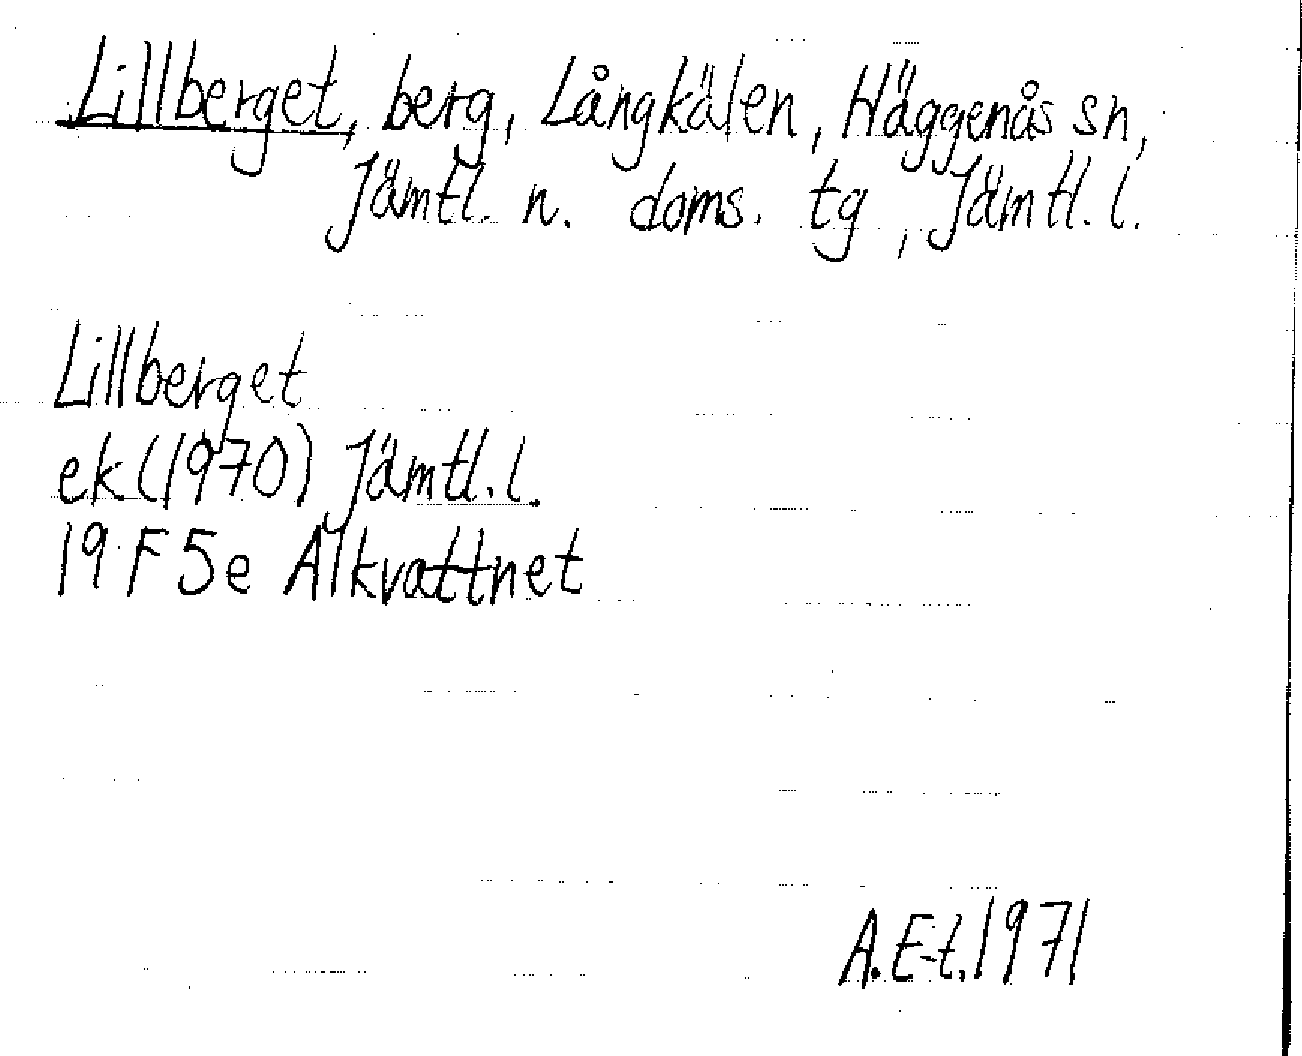 Lillberget, berg, Långkälen, Häggenås sn,
Jämtl. n. doms. tg, Jämtl. l.
Lillberget
ek (1970) Jämtl. l.
19 F 5e Ålkvattnet
A. E-t. 1971